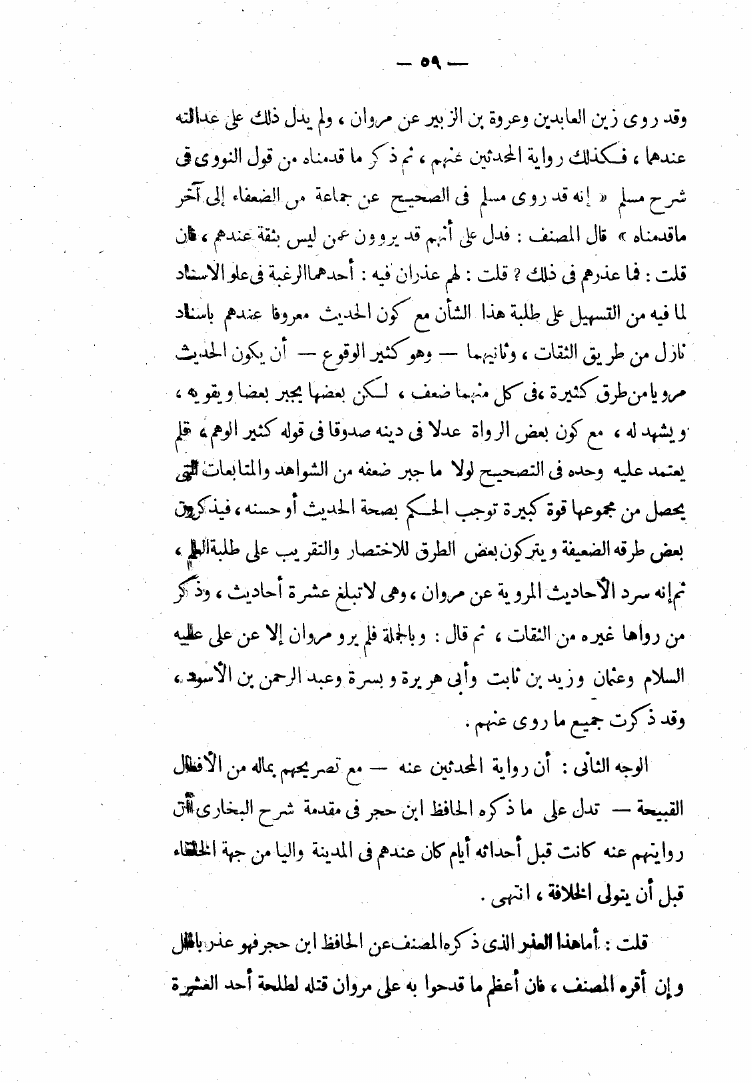 — ٥٩ —
وقد روى زين العابدين وعروة بن الزبير عن مروان ، ولم يدل ذلك على عدالته
عندهما ، فكذلك رواية المحدثين عنهم ، ثم ذكر ما قدمناه من قول النووى فى
شرح مسلم « إنه قد روى مسلم فى الصحيح عن جماعة من الضعفاء إلى آخر
ماقدمناه » قال المصنف : فدل على أنهم قد يروون عمن ليس بثقة عندهم ، فان
قلت : فما عذرهم فى ذلك ? قلت : لهم عذران فيه : أحدهما الرغبة فى علو الاسناد
لما فيه من التسهيل على طلبة هذا الشأن مع كون الحديث معروفا عندهم باسناد
نازل من طريق الثقات ، وثانيهما — وهو كثير الوقوع — أن يكون الحديث
مرويا من طرق كثيرة ،فى كل منهما ضعف ، لكن بعضها يجبر بعضا ويقويه ،
ويشهد له ، مع كون بعض الرواة عدلا فى دينه صدوقا فى قوله كثير الوهم ، فلم
يعتمد عليه وحده فى التصحيح لولا ما جبر ضعفه من الشواهد والمتابعات التى
يحصل من مجموعها قوة كبيرة توجب الحكم بصحة الحديث أو حسنه ، فيذكرون
بعض طرقه الضعيفة ويتركون بعض الطرق للاختصار والتقريب على طلبة العلم ،
ثم إنه سرد الأحاديث المروية عن مروان ، وهى لاتبلغ عشرة أحاديث ، وذكر
من رواها غيره من الثقات ، ثم قال : وبالجملة فلم يرو مروان إلا عن على عليه
السلام وعثمان وزيد بن ثابت وأبى هريرة وبسرة وعبد الرحمن بن الأسود ،
وقد ذكرت جميع ما روى عنهم .
الوجه الثانى : أن رواية المحدثين عنه — مع تصريحهم بماله من الأفعال
القبيحة — تدل على ما ذكره الحافظ ابن حجر فى مقدمة شرح البخارى أن
روايتهم عنه كانت قبل أحداثه أيام كان عندهم فى المدينة واليا من جهة الخلفاء
قبل أن يتولى الخلافة ، انتهى .
قلت : أما هذا العذر الذى ذكره المصنف عن الحافظ ابن حجر فهو عذر باطل
وإن أقره المصنف ، فان أعظم ما قدحوا به على مروان قتله لطلحة أحد العشيرة